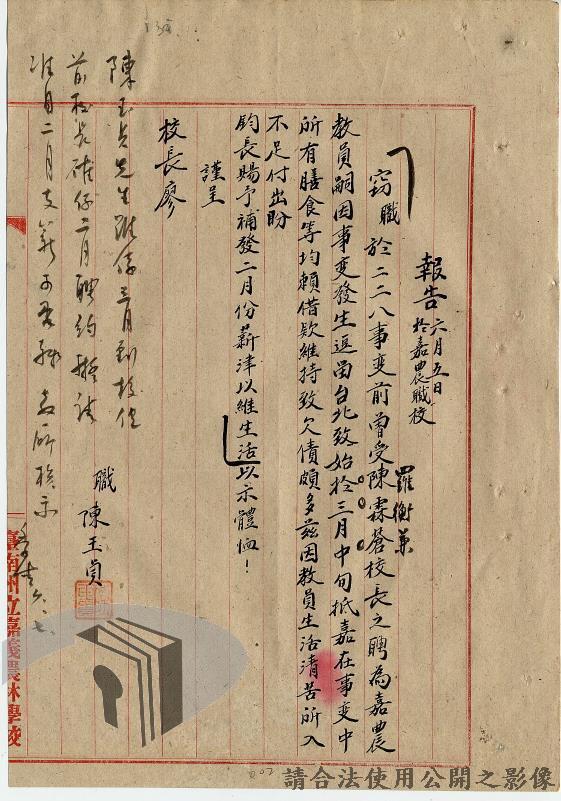 報告 六月五日
於嘉農職校
竊職於二二八事变前曾受陳霖蒼校長之聘為嘉農
羅衡
教員嗣因事变發生逗留台北致始於三月中旬抵嘉在事变中
所有膳食等均賴借欵維持致欠債頗多茲因教員生活清苦所入
不足付出盼
鈞長賜予補發二月份薪津以維生活以示體恤！
謹呈
校長廖
職 陳玉貞
陳玉貞先生雖係三月到校但
前校長確係二月聘約擬請
准自二月支薪可否 核示
六、七
臺南州立嘉義農林學校
002
請合法使用公開之影像